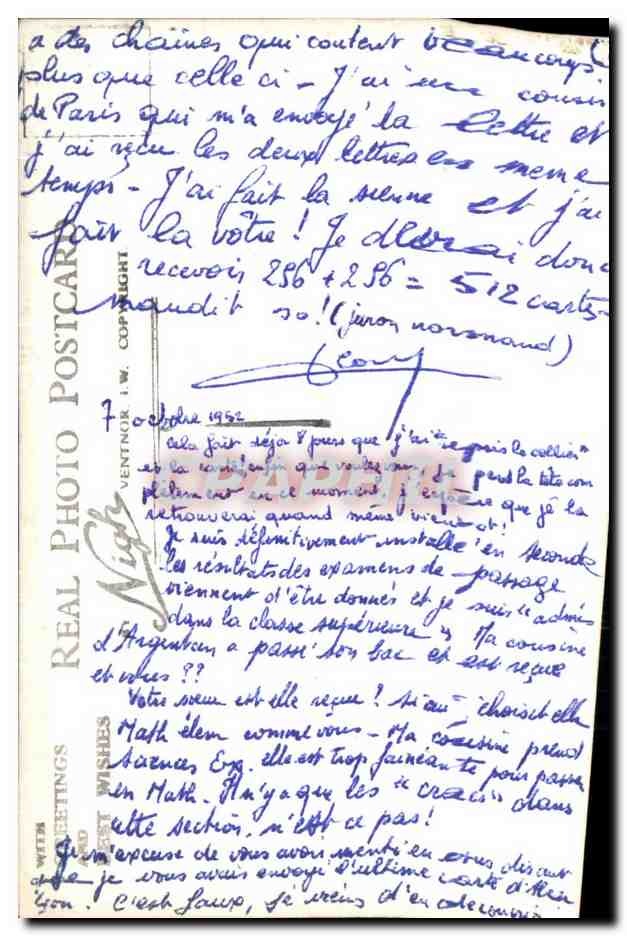 a des chaînes qui coutent beaucoup
plus que celle ci - J'ai une cousine
de Paris qui m'a envoyé la lettre et
j'ai reçu les deux lettres en meme
temps - J'ai fait la sienne et j'ai
fait la vôtre! Je devrai donc
recevoir 256 + 256 = 512 cartes -
maudit so! (juron normand)
7 octobre 1952
cela fait déja 8 jours que j'ai "repris le collier"
et la carte enfin que voulez vous, je perd la tête com
plètement en ce moment, j'espère que je la
retrouverai quand même bientot!
Je suis définitivement installé en seconde
les résultats des examens de passage
viennent d'être donnés et je suis "admis
dans la classe supérieure" Ma cousine
d'Argentan a passé son bac et est reçue
et vous??
Votre sœur est elle reçue? si oui, choisit elle
Math élem comme vous - Ma cousine prend
Sciences Exp. elle est trop fainéante pour passer
en Math - Il n'y a que les "cracs" dans
cette section, n'est ce pas!
Je m'excuse de vous avoir menti en vous disant
que je vous avais envoyé l'ultime carte d'Alen
çon. C'est faux, je viens d'en decouvrir
WITH GREETINGS AND BEST WISHES
REAL PHOTO POSTCARD
Nigh
VENTNOR I.W. COPYRIGHT